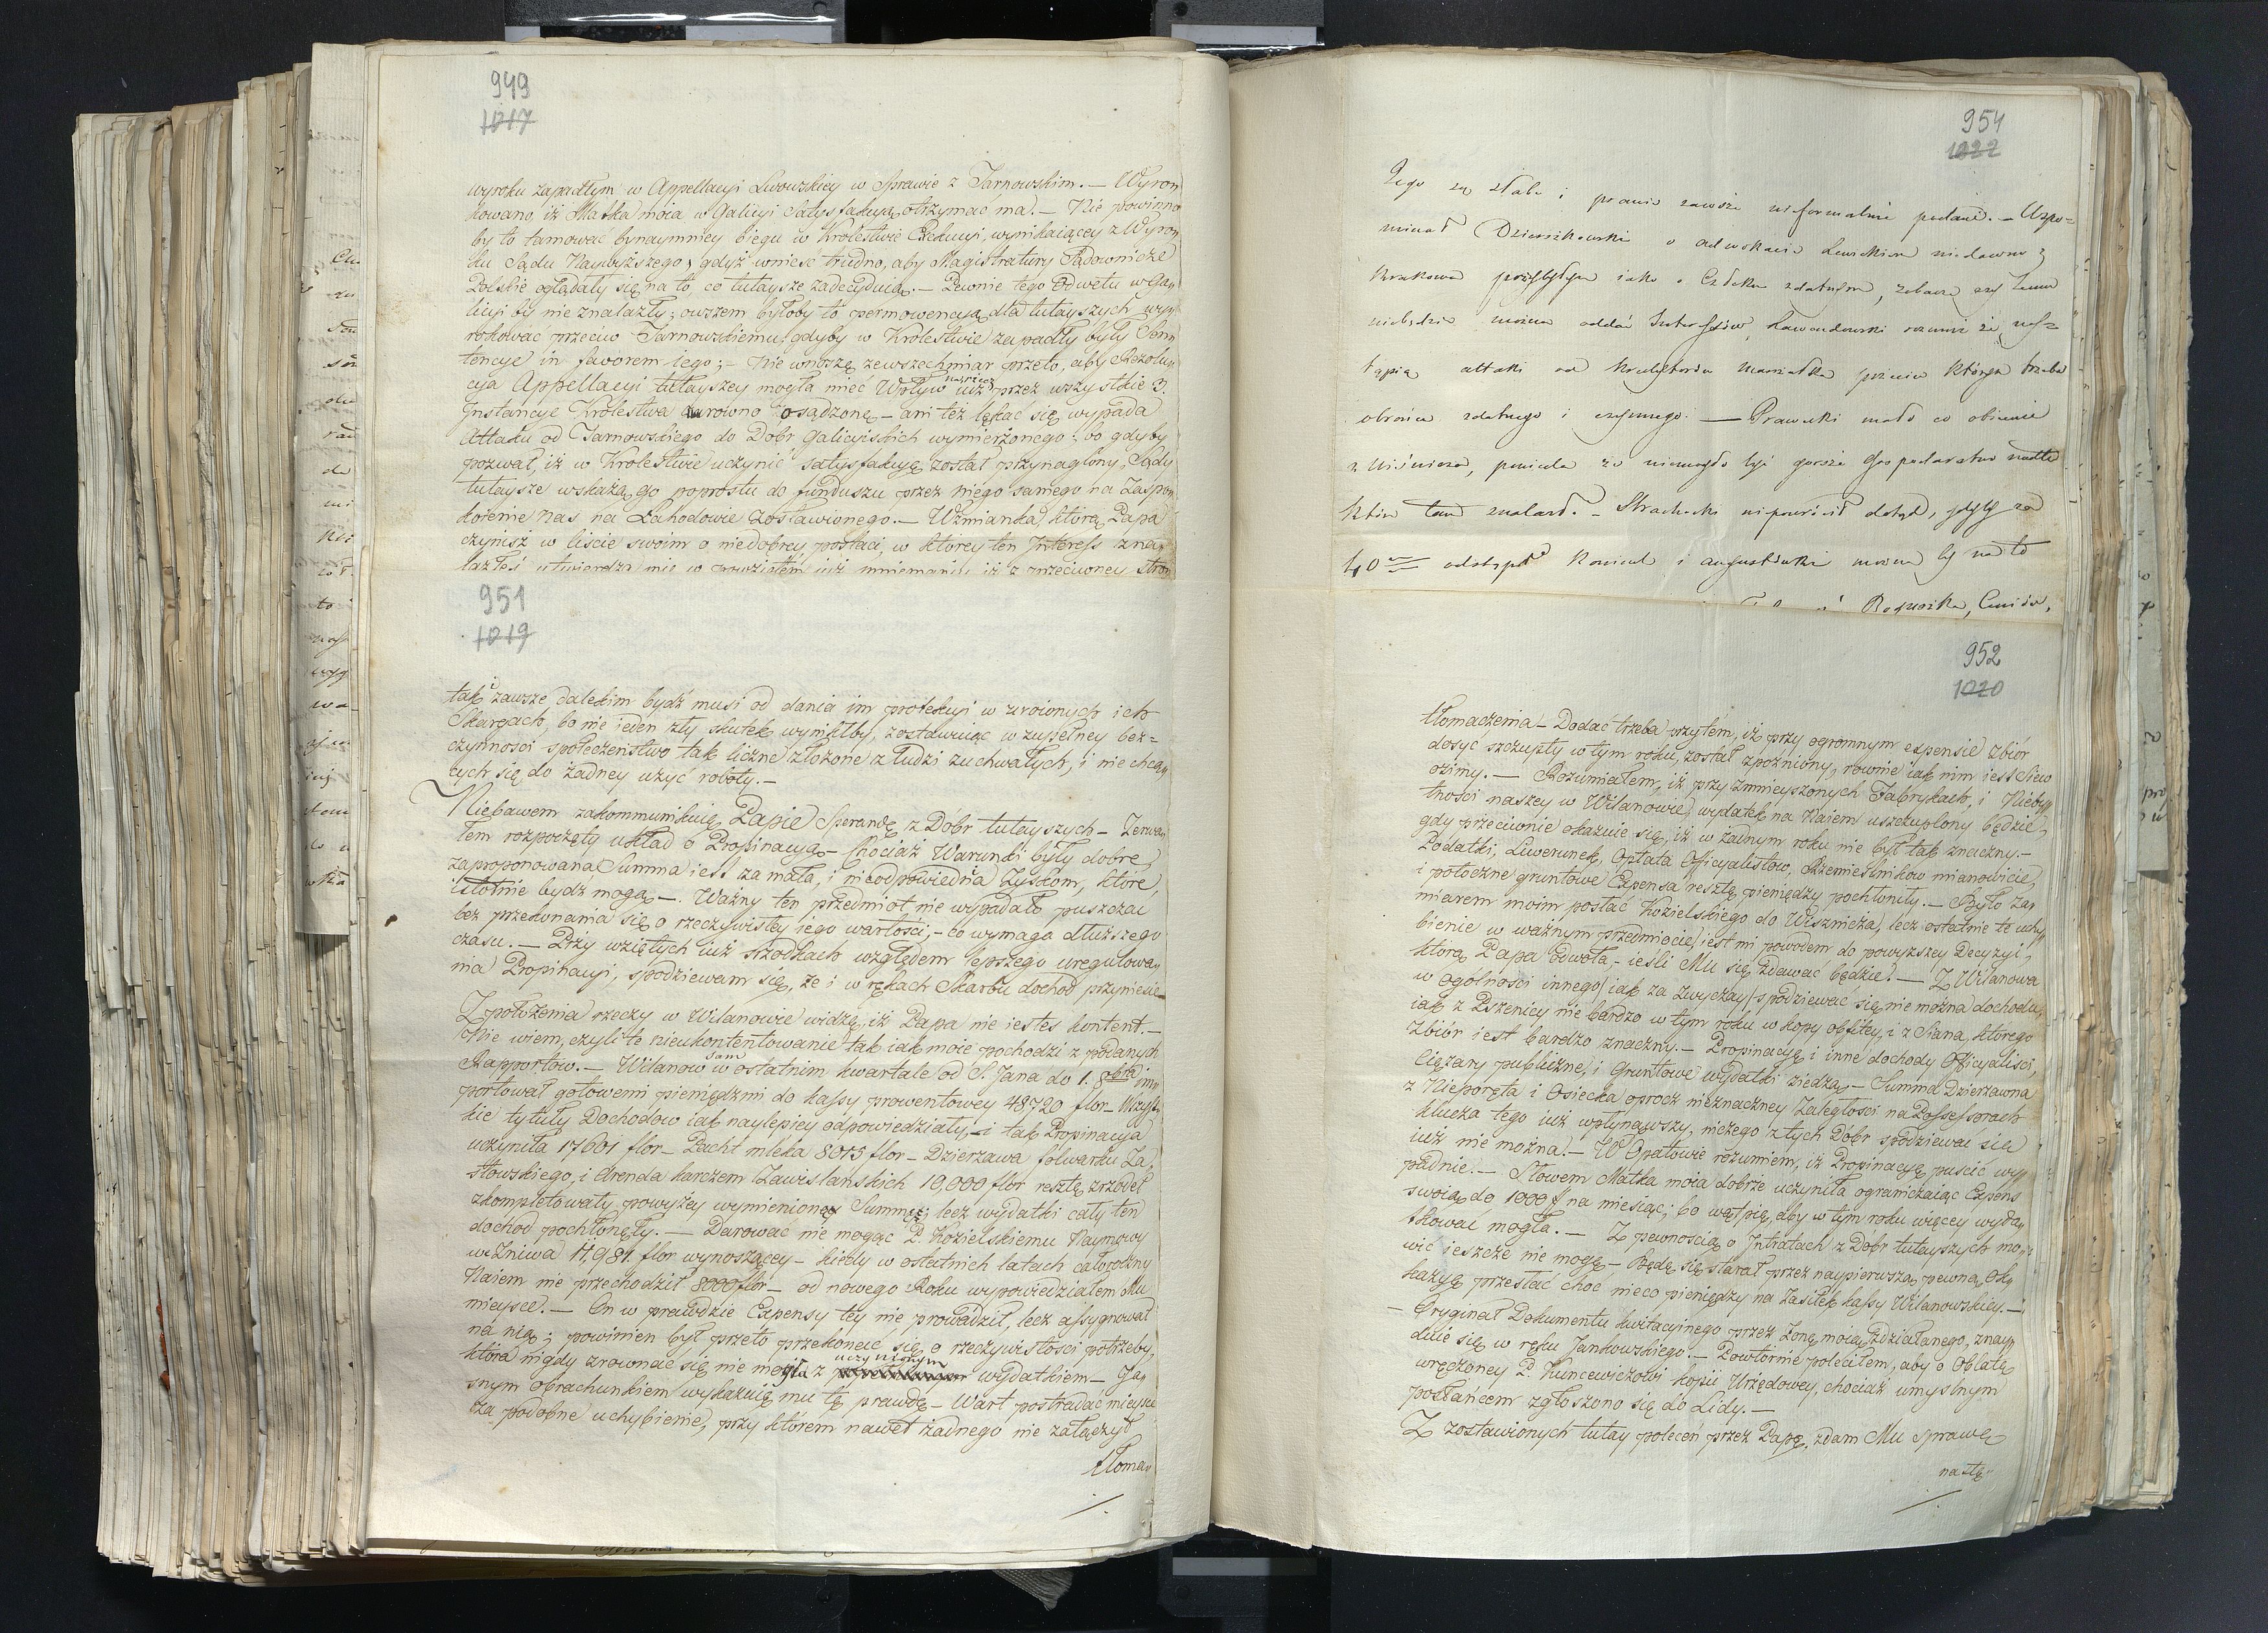 949
1017
wyroku zapadłym w Appellacyi Lwowskiey w Sprawie z Tarnowskim. — Wyron
kowano, iż Matka moia w Galicyi Satysfakcyą otrzymać ma. — Nie powinno
by to tamować bynaymniey biegu w Krolestwie Exekucyi, wynikaiącey z Wyro
ku Sądu Naywyższego; gdyż wnieść trudno, aby Magistratury Sądownicze
Polskie oglądały się na to, co tutaysze zadecyduią. — Pewnie tego Odwetu w Ga
licyi by nie znalazły; owszem byłoby to dla tutayszych wy
rokować przeciw Tarnowskiemu, gdyby w Krolestwie zapadły były Sen
tencye in favorem iego; — nie wnoszę zewszechmiar przeto, aby Rezolu
cya Appellacyi tutayszey mogła mieć Wpływ iuż przez wszystkie 3.
Instancye Krolestwa osądzoną — ani też lękać się wypada
Attaku od Tarnowskiego do Dobr Galicyiskich wymierzonego; bo gdyby
pozwał, iż w Krolestwie uczynić satysfakcyę został przynaglony, Sądy
tutaysze wskażą go poprostu do funduszu przez niego samego na Zaspo
koienie nas na Lahodowie zostawionego. — Wzmianka, którą Papa
czynisz w liście swoim o niedobrey postaci, w ktorey ten Interess zna
lazłeś utwierdza mię w powziętem iuż mniemaniu iż z przeciwney stron
951
1019
tak i zawsze dalekim bydź musi od dania im protekcyi w uroionych ich
Skargach, bo nie ieden zły skutek wynikłby, zostawuiąc w zupełney bez=
czynności społeczeństwo tak liczne złożone z ludzi zuchwałych, i nie chcą
cych się do żadney użyć roboty. —
Niebawem zakommunikuię Papie Sperandę z Dobr tutayszych — Zerwa
łem rozpoczęty układ o Propinacyą — Chociaż Warunki były dobre,
zaproponowana Summa iest za mała, i nieodpowiednia Zyskom, które
istotnie bydź mogą —. Ważny ten przedmiot nie wypadało puszczać
bez przekonania się o rzeczywistey iego wartości; — co wymaga dłuższego
czasu. — Przy wziętych iuż srzodkach względem lepszego uregulowa
nia Propinacyi, spodziewam się, że i w rękach Skarbu dochod przyniesie
Z położenia rzeczy w Wilanowie widzę, iż Papa nie iestes kontent. —
Nie wiem, czyli te nieukontentowanie tak iak moie pochodzi z podanych
Rapportow. — Wilanow sam w ostatnim kwartale od S. Jana do 1. 8bra im
portował gotowemi pieniędzmi do kassy prowentowey 48720 flor — Wszyst
kie tytuły Dochodow iak naylepiey odpowiedziały — i tak Propinacya
uczyniła 17601 flor — Pacht mleka 8015 flor — Dzierzawa folwarku Za
stowskiego, i Arenda karczem Zawislanskich 10,000 flor resztę zrzodeł
zkompletowały powyżey wymienioną Summę; lecz wydatki cały ten
dochod pochłonęły. — Darować nie mogąc P. Kozielskiemu Naymowy
w Zniwa 11,981. flor wynoszącey — kiedy w ostatnich latach całoroczny
Naiem nie przechodził 8000 flor — od nowego Roku wypowiedziałem Mu
mieysce. — On w prawdzie Expensy tey nie prowadził, lecz assygnował
na nię; powinien był przeto przekonać się o rzeczywistości potrzeby,
która nigdy zrownać się nie mogła z uczynionym wydatkiem — Ja
snym obrachunkiem wykazuię mu tę prawdę — Wart postradać mieysce
za podobne uchybienie, przy którem nawet żadnego nie załączył
tłoma
954
1022
Jego są słabe i prawie zawsze nieformalnie podane. — Wspo=
minał Dzierzkowski o adwokacie Lewickim niedawno z
Krakowa przybyłym iako o Człeku zdatnym, zobaczę czy temu
niebędzie można oddać Interessów, Lewandowski rozumie że nas=
tąpią attaki od przeciw których trzeba
obrońca zdatnego i czynnego. — Prawecki mało co obiecuie
z Wiśnicza, powiada że niemogło być gorsze Gospodarstwo nadto
które tam znalazł. — Strachocki niepowrócił dotąd, gdyby za
40 odstąpił Konicul i augustówki można by nad to
Rogoźka,
952
1020
tłomaczenia — Dodać trzeba przytém, iż przy ogromnym expensie zbiór
dosyć szczupły w tym roku, został spoźniony, rownie iak nim iest Siew
ozimy. — Rozumiałem, iż przy zmnieyszonych Fabrykach, i Nieby
tności naszey w Wilanowie, wydatek na Naiem uszczuplony będzie,
gdy przeciwnie okazuie się, iż w żadnym roku nie był tak znaczny. —
Podatki, Liwerunek, Opłata Officyalistow, Rzemieslnikow mianowicie,
i potoczne gruntowe Expensa resztę pieniędzy pochłonęły. — Było za
miarem moim posłać Kozielskiego do Wisznicza, lecz ostatnie te uchy
bienie w ważnym przedmiocie, iest mi powodem do powyższey Decyzyi,
ktorą Papa odwoła, — ieśli Mu się zdawać będzie. — Z Wilanowa
w ogólności innego iak za zwyczay spodziewać się nie można dochodu,
iak z Pszenicy nie bardzo w tym roku w kopy obfitey, i z Siana, ktorego
Zbiór iest bardzo znaczny. — Propinacyę i inne dochody Officyaliści,
Ciężary publiczne, i Gruntowe wydatki ziedzą — Summa Dzierzawna
z Nieporęta i Osiecka oprocz nieznaczney Zaległości na Possessorach
klucza tego iuż wpłynąwszy, niczego z tych Dóbr spodziewać się
iuż nie można. — W Opatowie rozumiem, iż Propinacyę puścić wy
padnie. — Słowem Matka moia dobrze uczyniła ograniczaiąc Expens
swoią do 1000 # na miesiąc; bo wątpię, aby w tym roku więcey wyda
tkować mogła. — Z pewnością o Intratach z Dobr tutayszych mo
wić ieszcze nie mogę — Będę się starał przez naypierwszą pewną Ok
kazyę przesłać choć nieco pieniędzy na Zasiłek kassy Wilanowskiey. —
— Oryginał Dokumentu kwitacyinego przez Zonę moią zdziałanego, znay
duie się w ręku Jankowskiego. — Powtórnie poleciłem, aby o Oblatę
wręczoney P. Kuncewiczowi kopii Urzędowey, chociaż umyslnym
posłańcem zgłoszono się do Lidy. —
Z zostawionych tutay poleceń przez Papę, zdam Mu sprawę
nastę